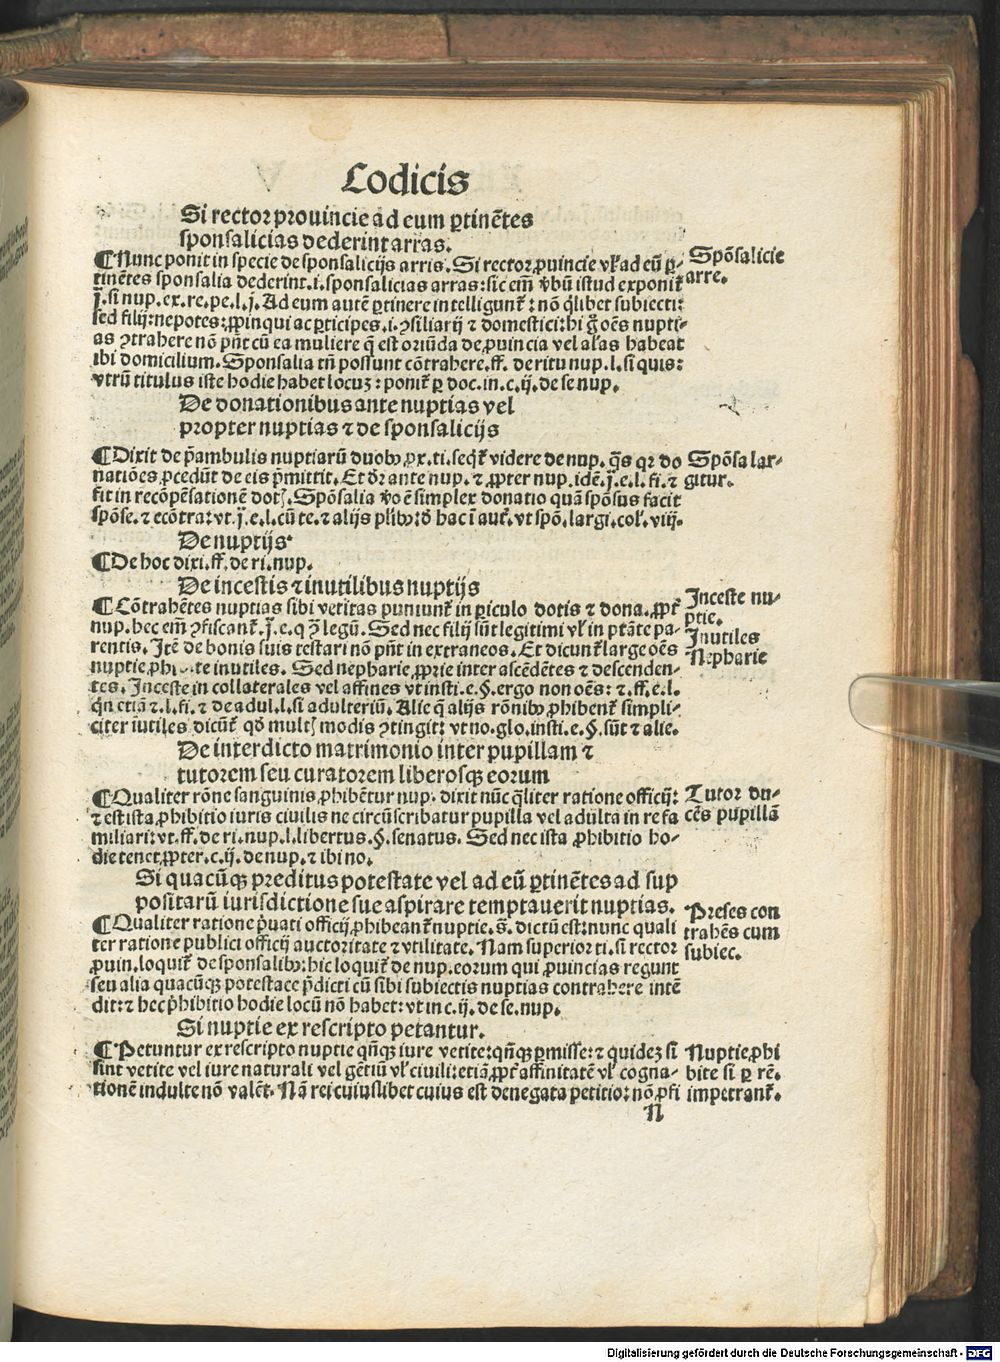 Codicis
Si rector prouincie ad eum ꝑtinẽtes
sponsalicias dederint arras.
¶Nunc ponit in specie de sponsalicijs arris. Si rector ꝓuincie vl̓ ad eũ ꝑ-
tinẽtes sponsalia dederint .i. sponsalicias arras: sic em̃ v̓bũ istud exponit̃
j. si nup. ex. re. pe. l. j. Ad eum autẽ ꝑtinere intelligunt̃: nõ q̃libet subiecti:
sed filij: nepotes: ꝓpinqui ac ꝑticipes .i. ꝯsiliarij ⁊ domestici: hi g̊ oẽs nupti-
as ꝯtrahere nõ pñt cũ ea muliere q̃ est oriũda de ꝓuincia vel al̓as habeat
ibi domicilium. Sponsalia tñ possunt cõtrahere. ff. de ritu nup. l. si quis:
vtrũ titulus iste hodie habet locuꝫ: ponit̃ ꝑ doc. in. c. ij. de se nup.
De donationibus ante nuptias vel
propter nuptias ⁊ de sponsalicijs
¶Dixit de p̃ambulis nuptiarũ duobꝰ. ꝓx. ti. seq̃t̃ videre de nup. q̃s qꝛ do
natiões ꝓcedũt de eis p̃mittit. Et dr̃ ante nup. ⁊ ꝓpter nup. idẽ. j. e. l. fi. ⁊
fit in recõpẽsationẽ dotꝭ. Spõsalia v̓o ẽ simplex donatio quã spõsus facit
spõse. ⁊ ecõtra: vt. j. e. l. cũ te. ⁊ alijs pl̓ibꝰ: d̓ hac ĩ aut̃. vt spõ. largi. col̓. viij.
De nuptijs.
¶De hoc dixi. ff. de ri. nup.
De incestis ⁊ inutilibus nuptijs
¶Cõtrahẽtes nuptias sibi vetitas puniunt̃ in ꝑiculo dotis ⁊ dona. ꝓpt̃
nup. hec em̃ ꝯfiscant̃. j. e. q ꝯ̃ legũ. Sed nec filij sũt legitimi vl̓ in ptãte pa-
rentis. Itẽ de bonis suis testari nõ pñt in extraneos. Et dicunt̃ large oẽs
nuptie ꝓhi te inutiles. Sed nepharie ꝓprie inter ascẽdẽtes ⁊ descenden-
tes. Inceste in collaterales vel affines vt insti. e. §. ergo non oẽs: ⁊. ff. e. l.
q̃n etiã ⁊. l. fi. ⁊ de adul. l. si adulteriũ. Alie q̃ alijs rõnibꝰ ꝓhibent̃ simpli-
citer iutiles dicũt̃ qd̓ multꝭ modis ꝯtingit: vt no. glo. insti. e. §. sũt ⁊ alie.
De interdicto matrimonio inter pupillam ⁊
tutorem seu curatorem liberosqꝫ eorum
¶Qualiter rõne sanguinis ꝓhibẽtur nup. dixit nũc q̃liter ratione officij:
⁊ est ista ꝓhibitio iuris ciuilis ne circũscribatur pupilla vel adulta in re fa
miliari: vt. ff. de ri. nup. l. libertus. §. senatus. Sed nec ista ꝓhibitio ho-
die tenet ꝓpter. c. ij. de nup. ⁊ ibi no.
Si quacũqꝫ preditus potestate vel ad eũ ꝑtinẽtes ad sup
positarũ iurisdictione sue aspirare temptauerit nuptias.
¶Qualiter ratione p̃uati officij ꝓhibeant̃ nuptie. s̃. dictũ est: nunc quali
ter ratione publici officij auctoritate ⁊ vtilitate. Nam superior ti. si rector
ꝓuin. loquit̃ de sponsalibꝰ: hic loquit̃ de nup. eorum qui ꝓuincias regunt
seu alia quacũqꝫ potestate p̃dicti cũ sibi subiectis nuptias contrahere intẽ
dit: ⁊ hec ꝓhibitio hodie locũ nõ habet: vt in c. ij. de se. nup.
Si nuptie ex rescripto petantur.
¶Petuntur ex rescripto nuptie qñqꝫ iure vetite: qñqꝫ ꝑmisse: ⁊ quideꝫ si
sint vetite vel iure naturali vel gẽtiũ vl̓ ciuili: etiã ꝓpt̃ affinitatẽ vl̓ cogna-
tionẽ indulte nõ valẽt. Nã rei cuiuslibet cuius est denegata petitio: nõ ꝓfi
N
Spõsalicie
arre.
Spõsa lar-
gitur.
Inceste nu-
ptie.
Inutiles
Nepharie
Tutor du-
cẽs pupillã
Preses con
trahẽs cum
subiec.
Nuptie ꝓhi
bite si ꝑ rẽ.
impetrant̃.
Digitalisierung gefördert durch die Deutsche Forschungsgemeinschaft - DFG